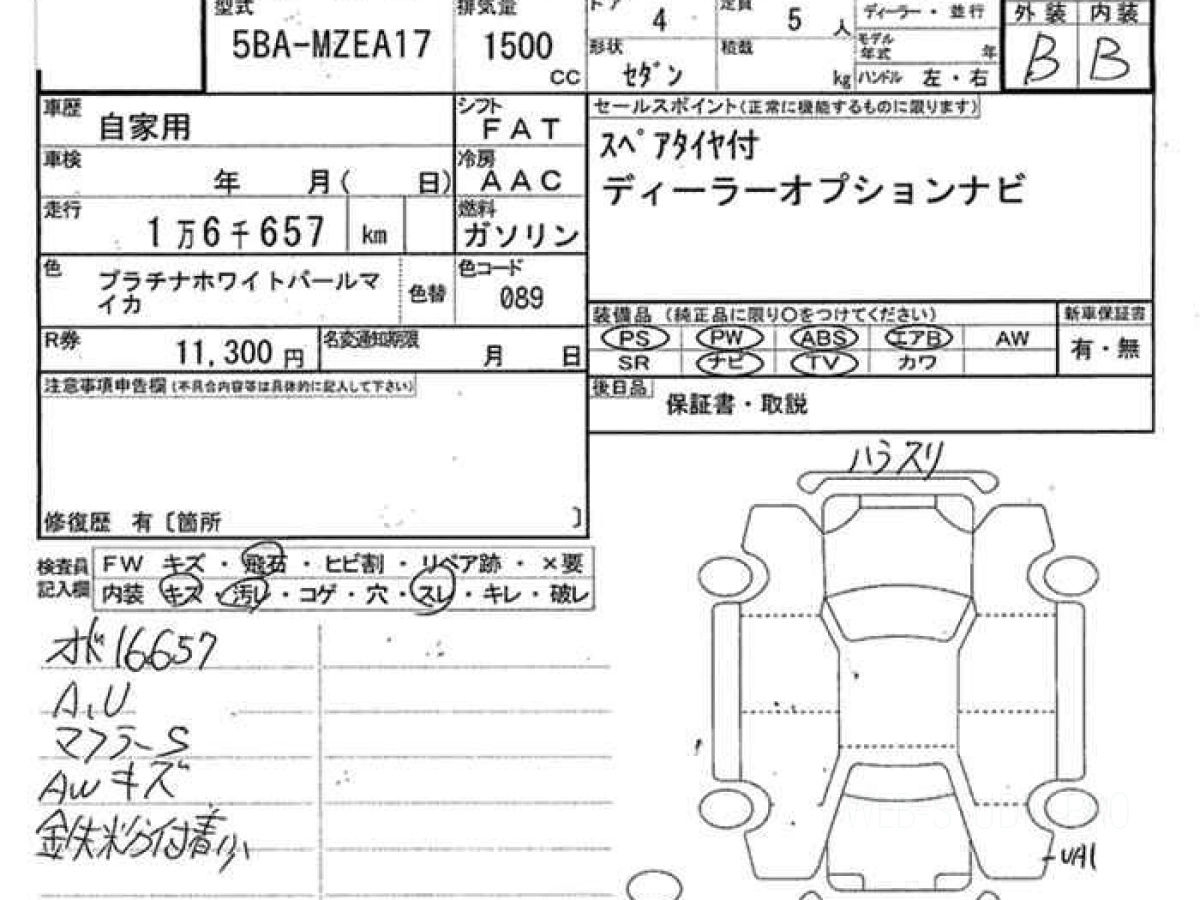 型式 排気量 ドア 定員 ディーラー・並行 外装 内装
5BA-MZEA17 1500 CC 4 5 人 B B
形状 積載 モデル年式 年
セダン kg ハンドル 左・右
車歴 自家用 シフト FAT セールスポイント(正常に機能するものに限ります)
車検 年 月( 日) 冷房 AAC スペアタイヤ付
走行 1万6千657 km 燃料 ガソリン ディーラーオプションナビ
色 プラチナホワイトパールマイカ 色替 色コード 089
装備品 (純正品に限り○をつけてください) 新車保証書
PS PW ABS エアB AW 有・無
SR ナビ TV カワ
R券 11,300 円 名変通知期限 月 日
注意事項申告欄(不具合内容等は具体的に記入して下さい)
後日品 保証書・取説
修復歴 有〔箇所 〕
検査員記入欄
FW キズ・飛石・ヒビ割・リペア跡・×要
内装 キズ・汚レ・コゲ・穴・スレ・キレ・破レ
ハラスリ
オド16657
A,U
マフラーS
AWキズ
鉄粉付着小
UA1